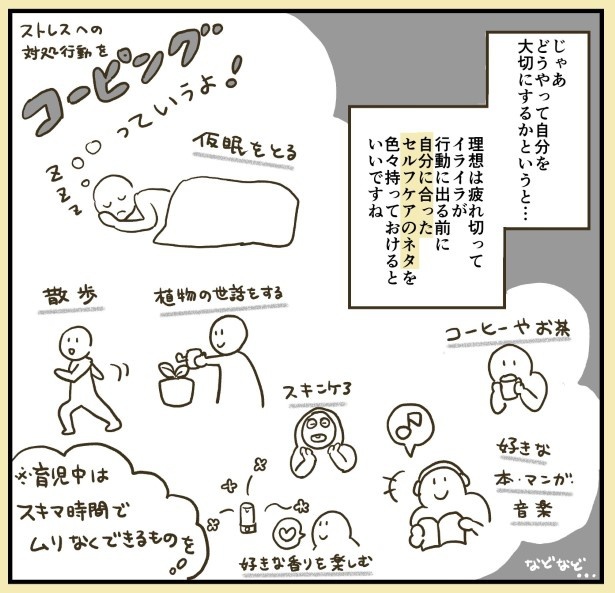 じゃあ
どうやって自分を
大切にするかというと…
理想は疲れ切って
イライラが
行動に出る前に
自分に合った
セルフケアのネタを
色々持っておけると
いいですね
ストレスへの
対処行動を
コーピング
っていうよ!
仮眠をとる
zzzz
散歩
植物の世話をする
コーヒーやお茶
スキンケア
好きな
本・マンガ
音楽
好きな香りを楽しむ
※育児中は
スキマ時間で
ムリなくできるものを
などなど…